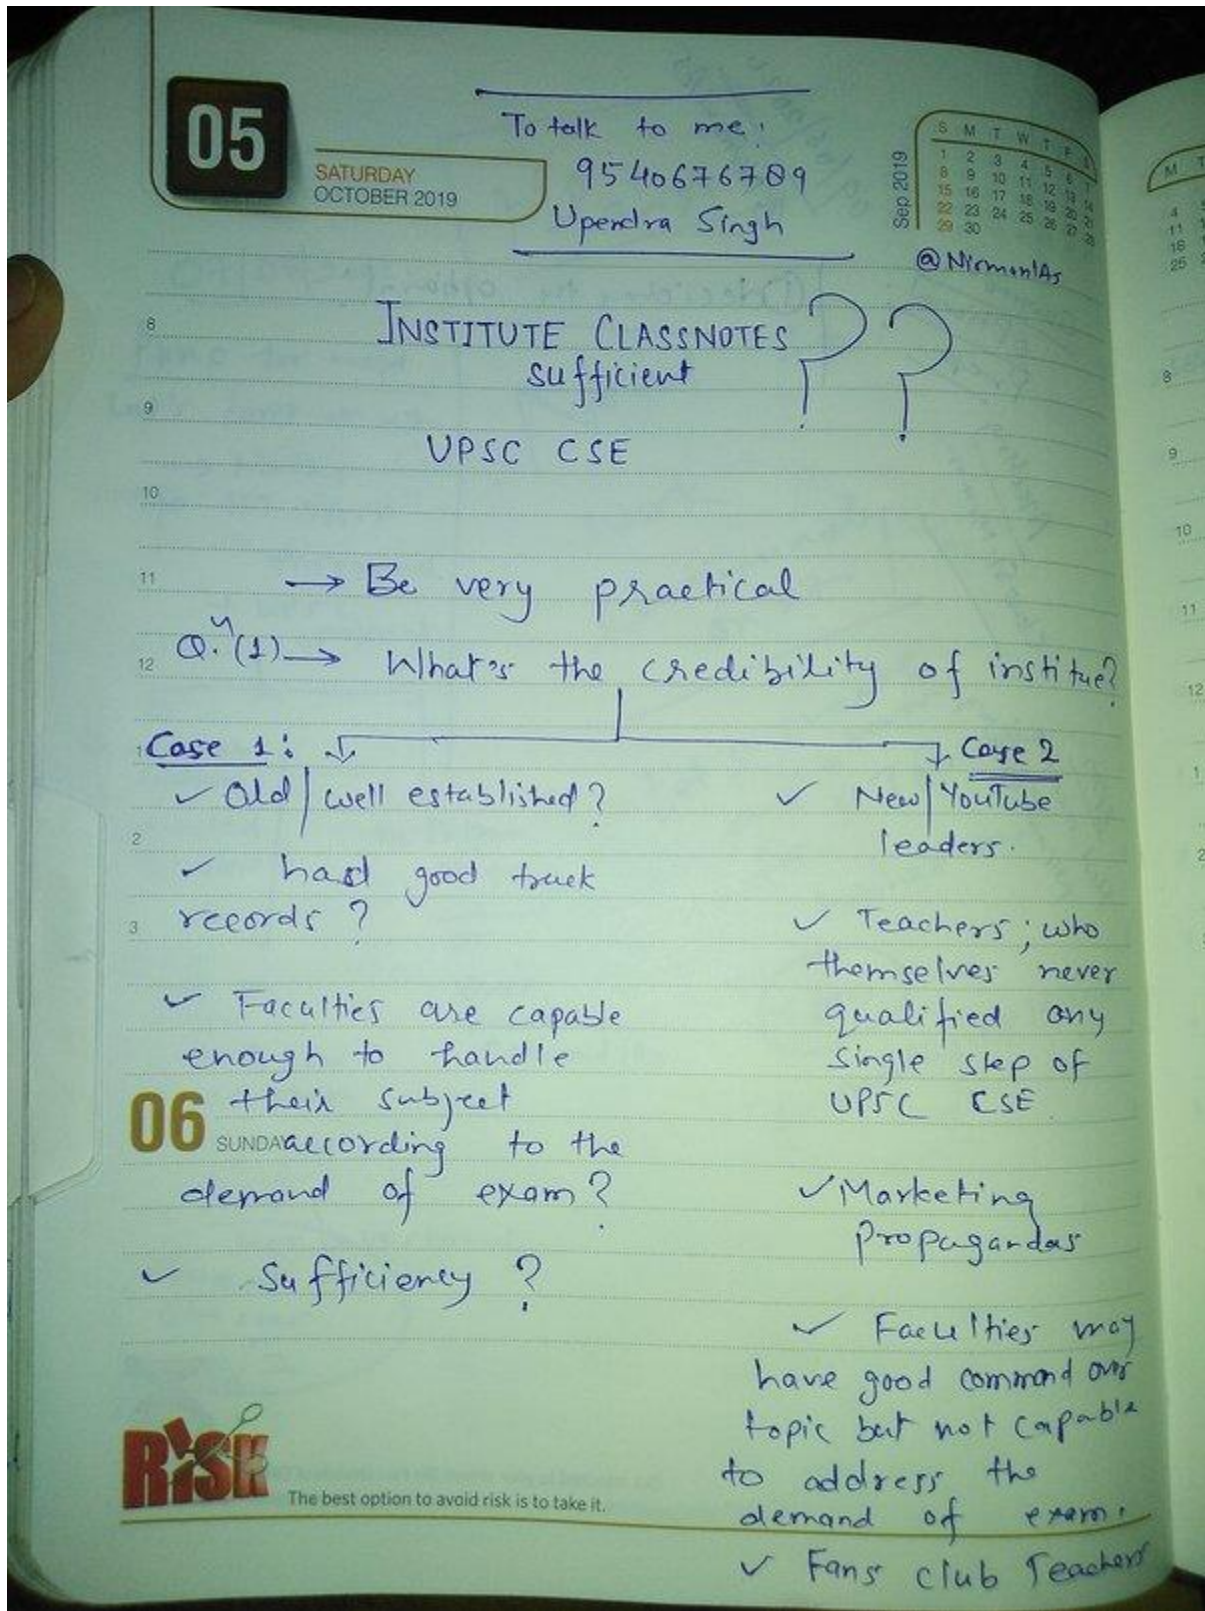 05
SATURDAY
OCTOBER 2019
To talk to me:
9540676789
Upendra Singh
Sep 2019
S M T W T F S
1 2 3 4 5 6 7
8 9 10 11 12 13 14
15 16 17 18 19 20 21
22 23 24 25 26 27 28
29 30
@NirmanIAs
INSTITUTE CLASSNOTES ??
sufficient
UPSC CSE
→ Be very practical
Q.n (1) → What's the credibility of institue?
Case 1:
✓ Old / well established?
✓ had good track
records?
✓ Faculties are capable
enough to handle
their subject
according to the
demand of exam?
✓ Sufficiency?
Case 2
✓ New / YouTube
leaders.
✓ Teachers; who
themselves never
qualified any
single step of
UPSC CSE
✓ Marketing
propagandas
✓ Faculties may
have good command over
topic but not capable
to address the
demand of exam.
✓ Fans club Teachers
8
9
10
11
12
1
2
3
06
SUNDAY
RISK
The best option to avoid risk is to take it.
M T
4
11
18
25
8
9
10
11
12
1
2